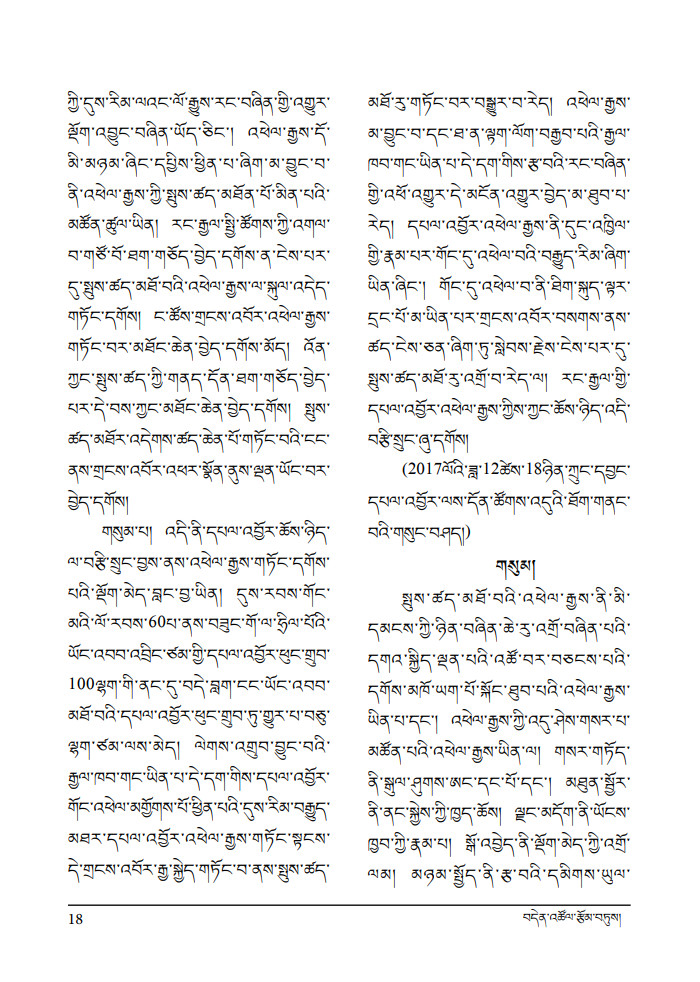 ཀྱི་དུས་རིམ་ལའང་ལོ་རྒྱུས་རང་བཞིན་གྱི་འགྱུར་
ལྡོག་འབྱུང་བཞིན་ཡོད་ཅིང་། འཕེལ་རྒྱས་དོ་
མི་མཉམ་ཞིང་དཔྱིས་ཕྱིན་པ་ཞིག་མ་བྱུང་བ་
ནི་འཕེལ་རྒྱས་ཀྱི་སྤུས་ཚད་མཐོན་པོ་མིན་པའི་
མཚོན་ཚུལ་ཡིན། རང་རྒྱལ་སྤྱི་ཚོགས་ཀྱི་འགལ་
བ་གཙོ་བོ་ཐག་གཅོད་བྱེད་དགོས་ན་ངེས་པར་
དུ་སྤུས་ཚད་མཐོ་བའི་འཕེལ་རྒྱས་ལ་སྐུལ་འདེད་
གཏོང་དགོས། ང་ཚོས་གྲངས་འབོར་འཕེལ་རྒྱས་
གཏོང་བར་མཐོང་ཆེན་བྱེད་དགོས་མོད། འོན་
ཀྱང་སྤུས་ཚད་ཀྱི་གནད་དོན་ཐག་གཅོད་བྱེད་
པར་དེ་བས་ཀྱང་མཐོང་ཆེན་བྱེད་དགོས། སྤུས་
ཚད་མཐོར་འདེགས་ཚད་ཆེན་པོ་གཏོང་བའི་ངང་
ནས་གྲངས་འབོར་འཕར་སྣོན་ནུས་ལྡན་ཡོང་བར་
བྱེད་དགོས།
གསུམ་པ། འདི་ནི་དཔལ་འབྱོར་ཆོས་ཉིད་
ལ་བརྩི་སྲུང་བྱས་ནས་འཕེལ་རྒྱས་གཏོང་དགོས་
པའི་ལྡོག་མེད་བླང་བྱ་ཡིན། དུས་རབས་གོང་
མའི་ལོ་རབས་60པ་ནས་བཟུང་གོ་ལ་ཧྲིལ་པོའི་
ཡོང་འབབ་འབྲིང་ཙམ་གྱི་དཔལ་འབྱོར་ཕུང་གྲུབ་
100ལྷག་གི་ནང་དུ་བདེ་བླག་ངང་ཡོང་འབབ་
མཐོ་བའི་དཔལ་འབྱོར་ཕུང་གྲུབ་ཏུ་གྱུར་པ་བཅུ་
ལྷག་ཙམ་ལས་མེད། ལེགས་འགྲུབ་བྱུང་བའི་
རྒྱལ་ཁབ་གང་ཡིན་པ་དེ་དག་གིས་དཔལ་འབྱོར་
གོང་འཕེལ་མགྱོགས་པོ་ཕྱིན་པའི་དུས་རིམ་བརྒྱུད་
མཐར་དཔལ་འབྱོར་འཕེལ་རྒྱས་གཏོང་སྟངས་
དེ་གྲངས་འབོར་རྒྱ་སྐྱེད་གཏོང་བ་ནས་སྤུས་ཚད་
མཐོ་རུ་གཏོང་བར་བསྒྱུར་བ་རེད། འཕེལ་རྒྱས་
མ་བྱུང་བ་དང་ཐ་ན་ལྟག་ལོག་བརྒྱབ་པའི་རྒྱལ་
ཁབ་གང་ཡིན་པ་དེ་དག་གིས་རྩ་བའི་རང་བཞིན་
གྱི་འཕོ་འགྱུར་དེ་མངོན་འགྱུར་བྱེད་མ་ཐུབ་པ་
རེད། དཔལ་འབྱོར་འཕེལ་རྒྱས་ནི་དུང་འཁྱིལ་
གྱི་རྣམ་པར་གོང་དུ་འཕེལ་བའི་བརྒྱུད་རིམ་ཞིག་
ཡིན་ཞིང་། གོང་དུ་འཕེལ་བ་ནི་ཐིག་སྐུད་ལྟར་
དྲང་པོ་མ་ཡིན་པར་གྲངས་འབོར་བསགས་ནས་
ཚད་ངེས་ཅན་ཞིག་ཏུ་སླེབས་རྗེས་ངེས་པར་དུ་
སྤུས་ཚད་མཐོ་རུ་འགྲོ་བ་རེད་ལ། རང་རྒྱལ་གྱི་
དཔལ་འབྱོར་འཕེལ་རྒྱས་ཀྱིས་ཀྱང་ཆོས་ཉིད་འདི་
བརྩི་སྲུང་ཞུ་དགོས།
(2017ལོའི་ཟླ་12ཚེས་18ཉིན་ཀྲུང་དབྱང་
དཔལ་འབྱོར་ལས་དོན་ཚོགས་འདུའི་ཐོག་གནང་
བའི་གསུང་བཤད།)
གསུམ།
སྤུས་ཚད་མཐོ་བའི་འཕེལ་རྒྱས་ནི་མི་
དམངས་ཀྱི་ཉིན་བཞིན་ཆེ་རུ་འགྲོ་བཞིན་པའི་
དགའ་སྐྱིད་ལྡན་པའི་འཚོ་བར་བཅངས་པའི་
དགོས་མཁོ་ཡག་པོ་སྐོང་ཐུབ་པའི་འཕེལ་རྒྱས་
ཡིན་པ་དང་། འཕེལ་རྒྱས་ཀྱི་འདུ་ཤེས་གསར་པ་
མཚོན་པའི་འཕེལ་རྒྱས་ཡིན་ལ། གསར་གཏོད་
ནི་སྒུལ་ཤུགས་ཨང་དང་པོ་དང་། མཐུན་སྦྱོར་
ནི་ནང་སྐྱེས་ཀྱི་ཁྱད་ཆོས། ལྗང་མདོག་ནི་ཡོངས་
ཁྱབ་ཀྱི་རྣམ་པ། སྒོ་འབྱེད་ནི་ལྡོག་མེད་ཀྱི་འགྲོ་
ལམ། མཉམ་སྤྱོད་ནི་རྩ་བའི་དམིགས་ཡུལ་
18
བདེན་འཚོལ་རྩོམ་བཏུས།